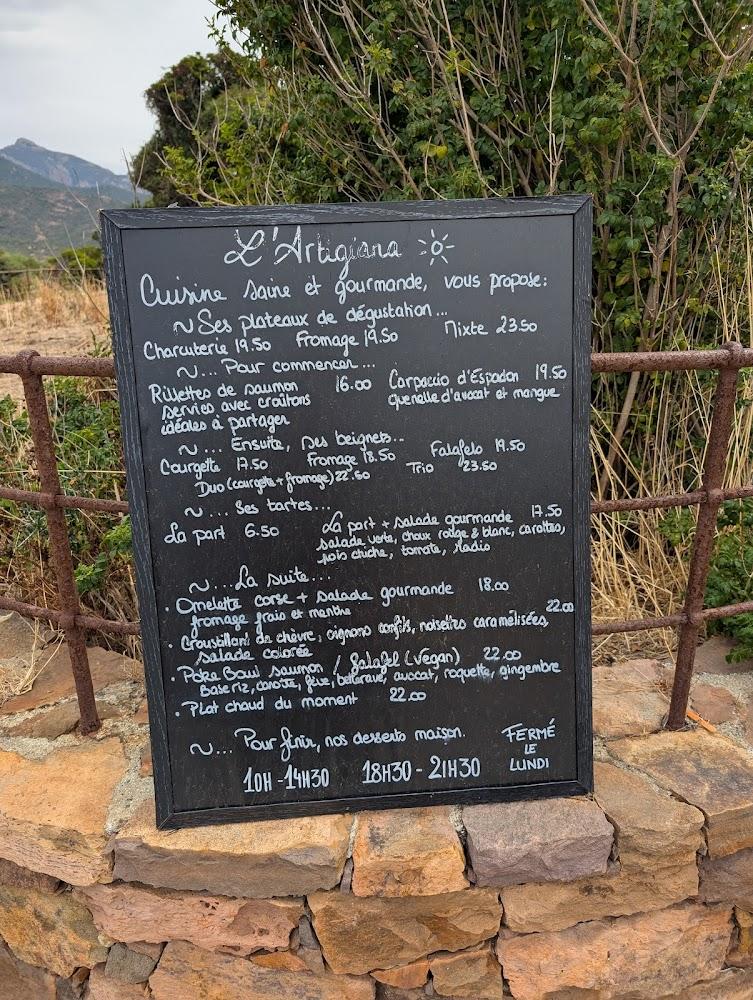 L'Artigiana
Cuisine saine et gourmande, vous propose:
~ Ses plateaux de dégustation...
Charcuterie 19.50 Fromage 19.50 Mixte 23.50
~... Pour commencer...
Rillettes de saumon 16.00 Carpaccio d'Espadon 19.50
servies avec croûtons quenelle d'avocat et mangue
idéales à partager
~... Ensuite, ses beignets...
Courgette 17.50 Fromage 18.50 Falafels 19.50
Duo (courgette + fromage) 22.50 Trio 23.50
~... Ses tartes...
La part 6.50 La part + salade gourmande 17.50
salade verte, choux rouge & blanc, carottes,
pois chiche, tomate, radis
~... La suite...
• Omelette corse + salade gourmande 18.00
fromage frais et menthe
• Croustillant de chèvre, oignons confits, noisettes caramélisées, 22.00
salade colorée
• Poke Bowl saumon / falafel (vegan) 22.00
Base riz, carotte, fève, betterave, avocat, roquette, gingembre
• Plat chaud du moment 22.00
~... Pour finir, nos desserts maison.
10H - 14H30 18H30 - 21H30
FERMÉ
LE
LUNDI